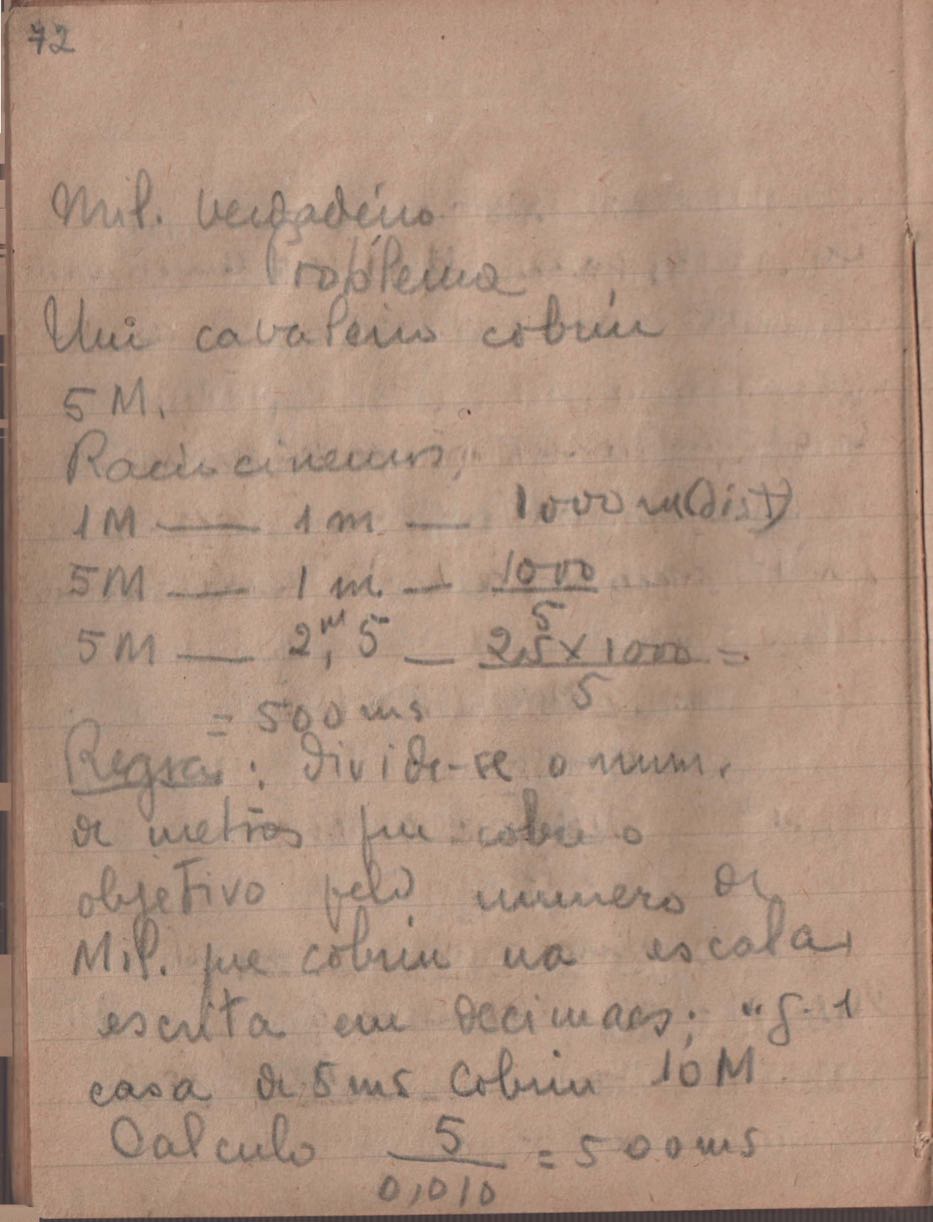 72
Mil. verdadeiro
Problema
Um cavaleiro cobriu
5 M.
Raciocinemos,
1M — 1 m — 1000 m (dist)
5M — 1 m. — 1000/5
5M — 2,m5 — 2,5 x 1000/5 =
= 500 ms
Regra: Divide-se o num.
de metros que cobre o
objetivo pelo numero de
Mil. que cobriu na escala,
escrita em decimaes; 1
casa de 5 ms cobriu 10 M
Calculo 5/0,010 = 500 ms